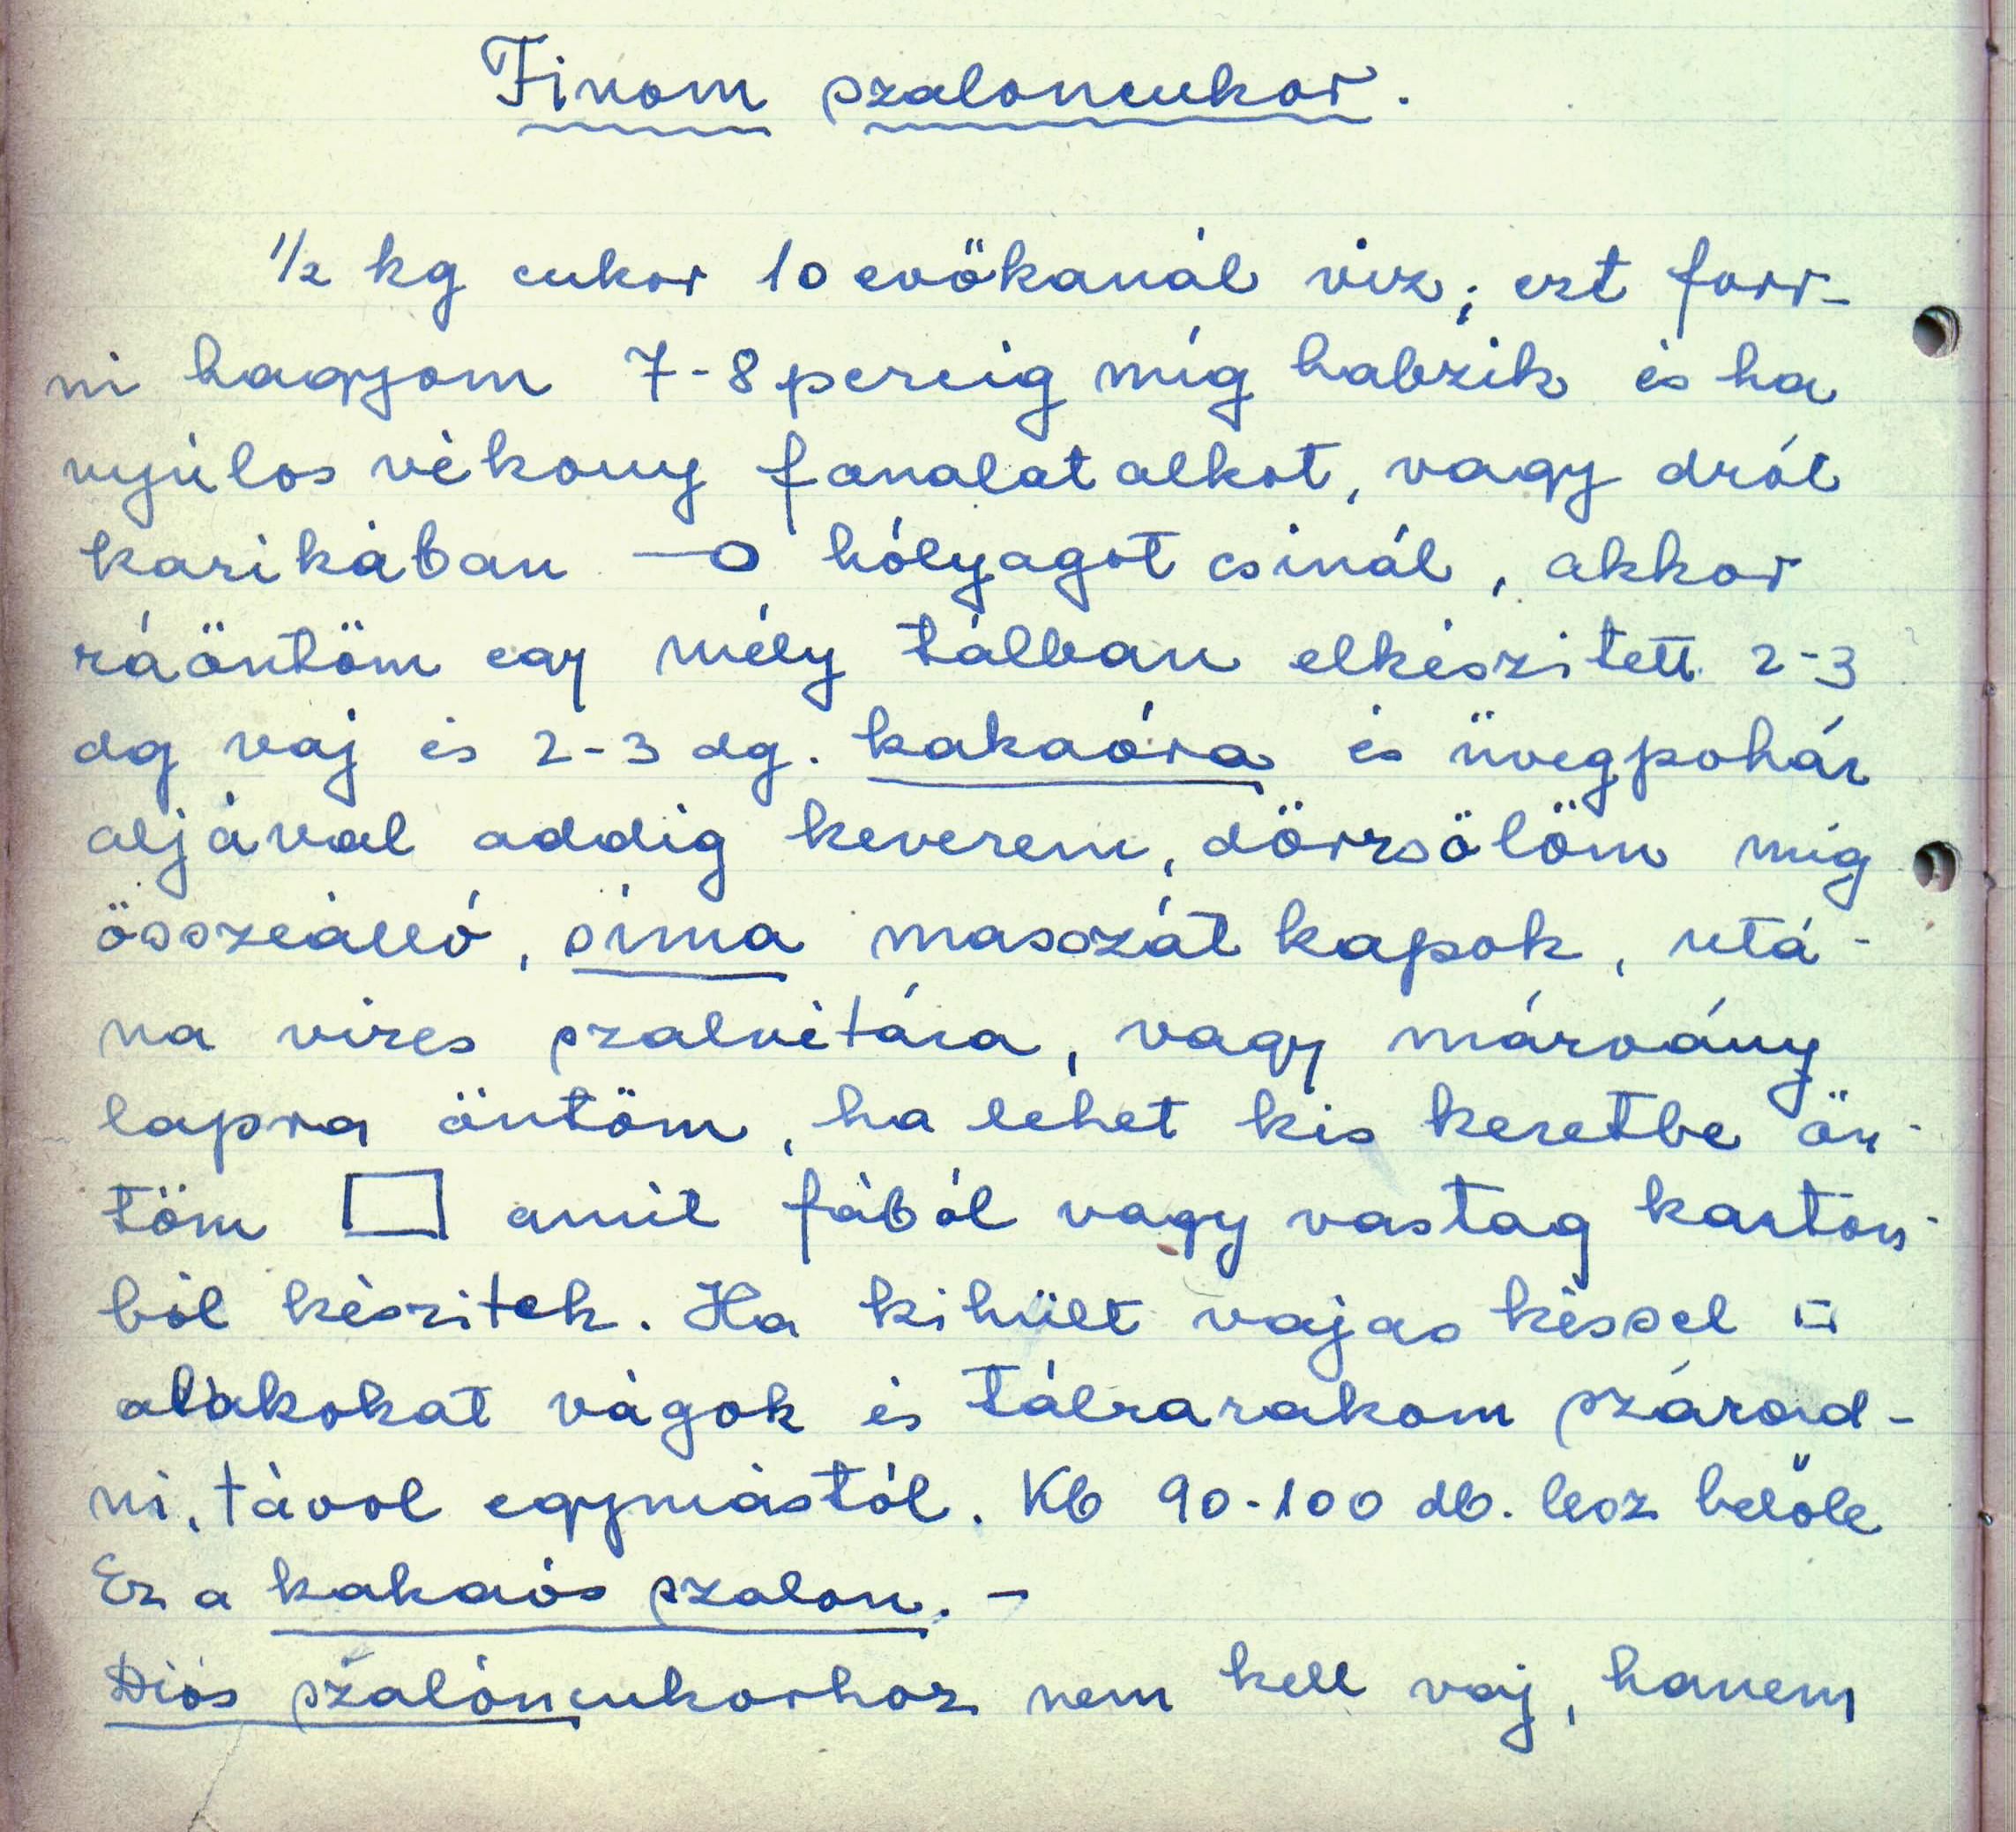 Finom szaloncukor.
1/2 kg cukor 10 evőkanál viz; ezt forr-
ni hagyom 7-8 percig míg habzik és ha
nyúlos vékony fonalat alkot, vagy drót
karikában —o hólyagot csinál, akkor
ráöntöm egy mély tálban elkészitett 2-3
dg vaj és 2-3 dg. kakaóra és üvegpohár
aljával addig keverem, dörzsölöm míg
összeálló, síma masszát kapok, utá-
na vizes szalvétára, vagy márvány
lapra öntöm, ha lehet kis keretbe ön-
töm □ amit fából vagy vastag karton-
ból készitek. Ha kihült vajas késsel □
alakokat vágok és tálrarakom szárad-
ni, távol egymástól. Kb 90-100 db. lesz belőle
Ez a kakaós szalon. -
Diós szalóncukorhoz nem kell vaj, hanem